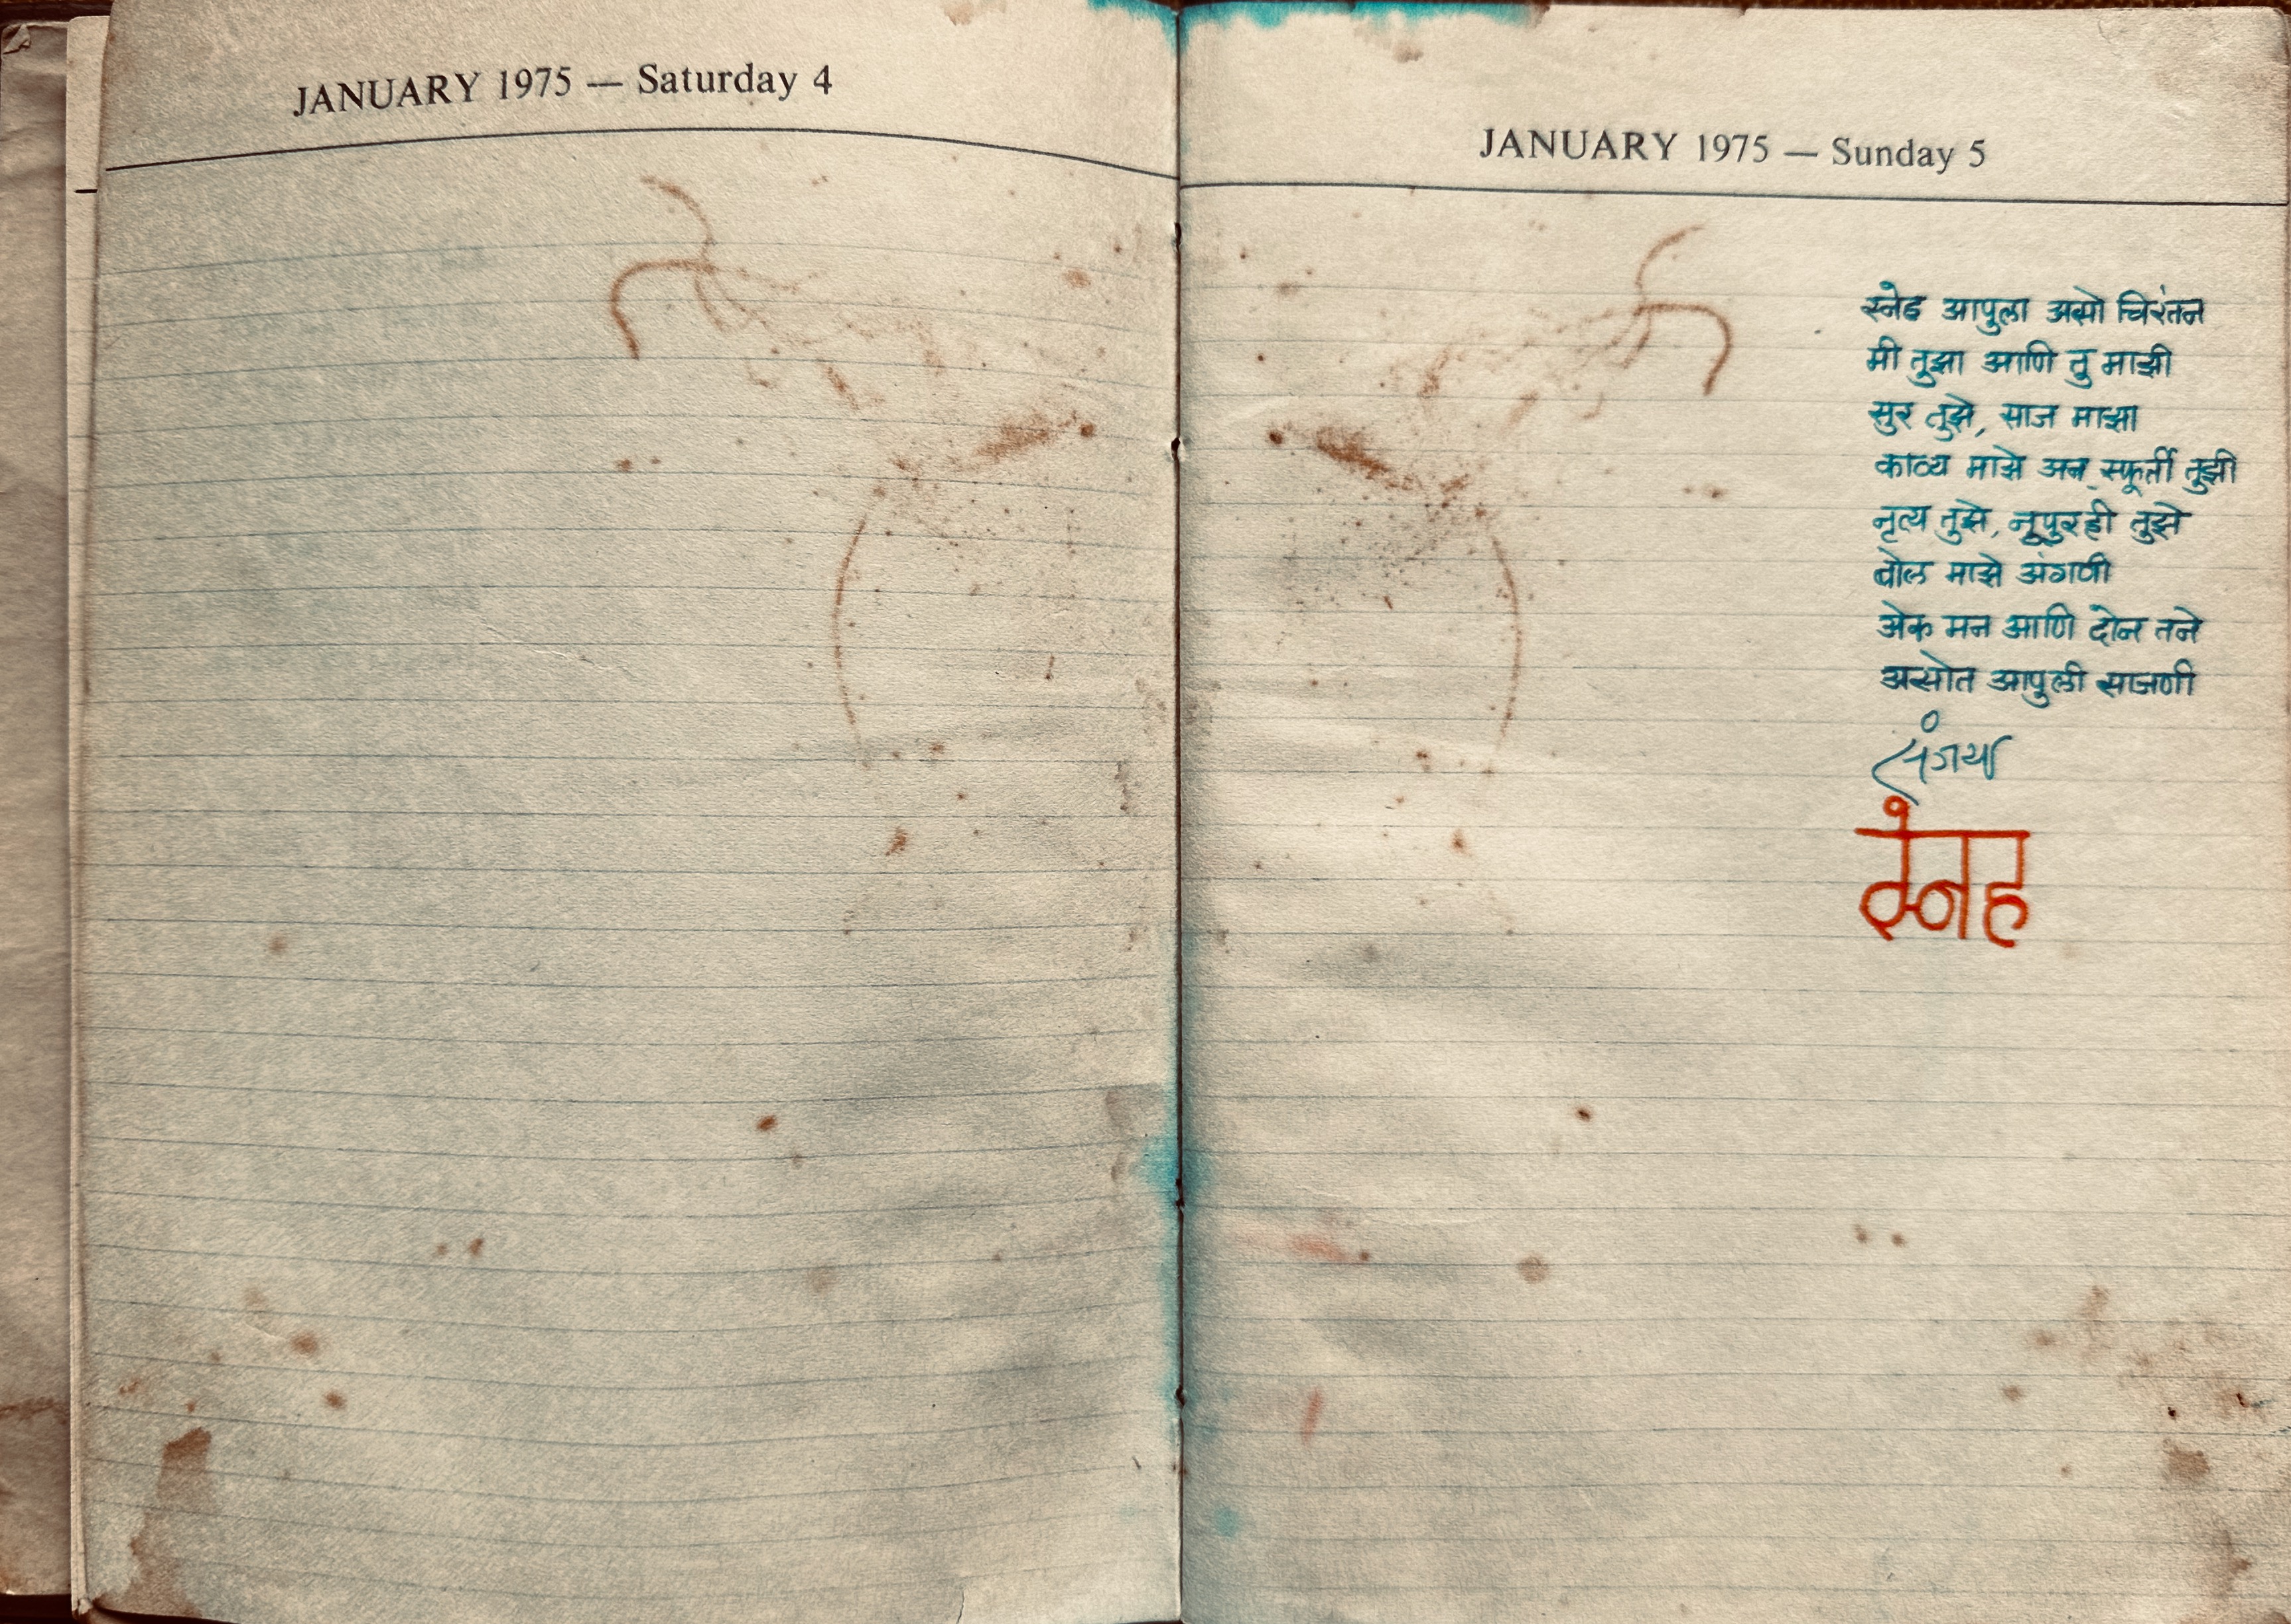 JANUARY 1975 — Saturday 4
JANUARY 1975 — Sunday 5
स्नेह आपुला असो चिरंतन
मी तुझा आणि तु माझी
सुर तुझे, साज माझा
काव्य माझे अन् स्फूर्ती तुझी
नृत्य तुझे, नूपुरही तुझे
बोल माझे अंगणी
अेक मन आणि दोन तने
असोत आपुली साजणी